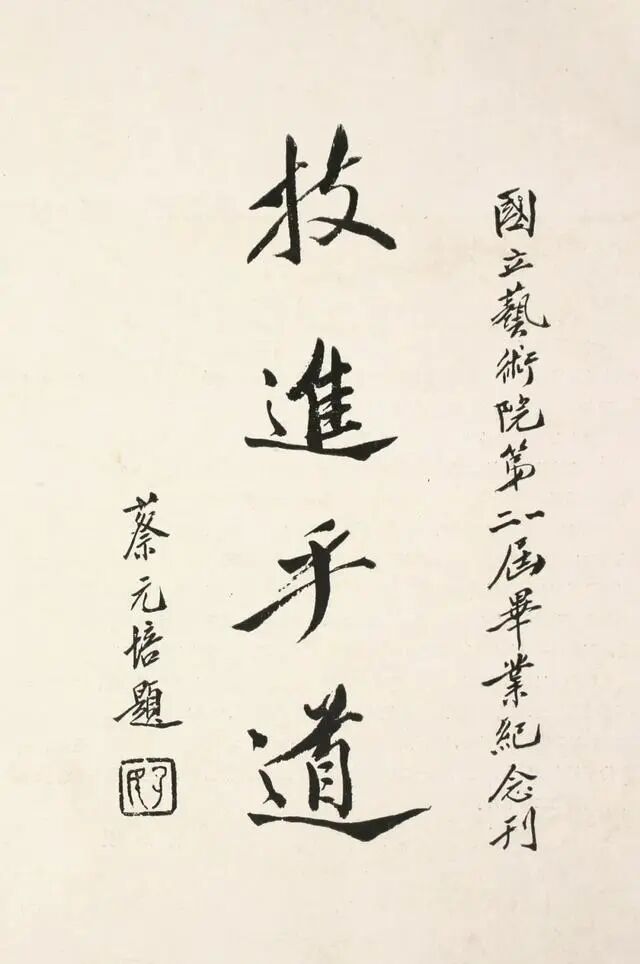 國立藝術院第二屆畢業紀念刊
技進乎道
蔡元培題
孑民